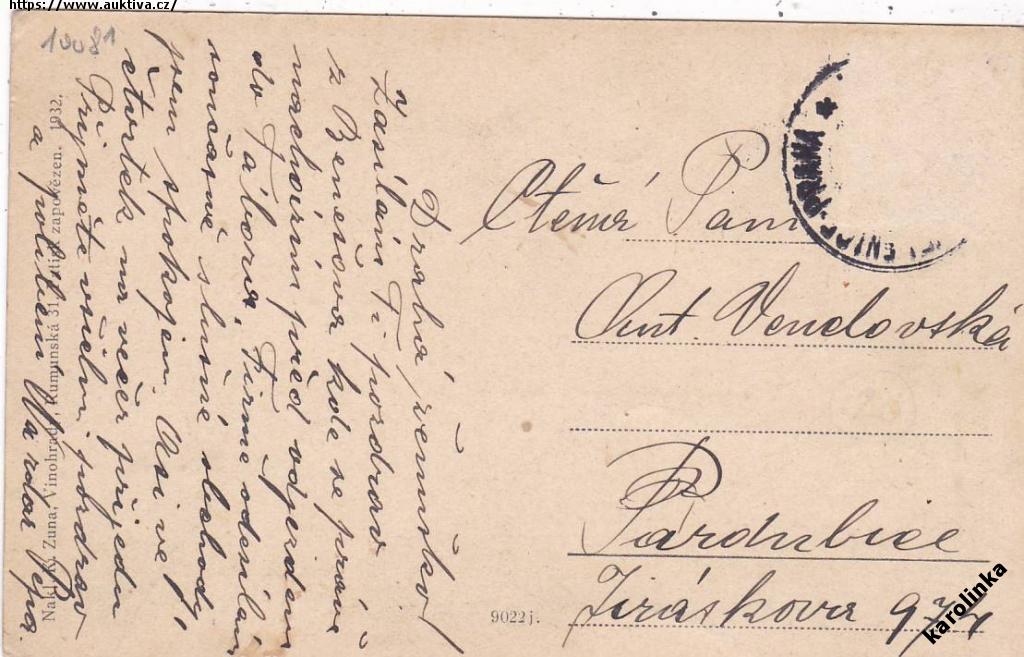 https://www.auktiva.cz/
10081
Drahá ženuško!
Zasílám Ti pozdrav
z Benešova kde se práve
nachávím před odjezdem
do Tábora, Firmě odesílám
současně slušné obchody
jsem spokojen. Asi ve
čtvrtek na večer přijedu
Přijměte všichni pozdrav
a políbení Váš Pepa.
Nakl. K. Zuna, Vinohrady, Rumunská 31. Tisk zapovězen. 1932.
9022 j.
Ctěná Paní
Ant. Vendovská
Pardubice
Jiráskova 977
karolinka